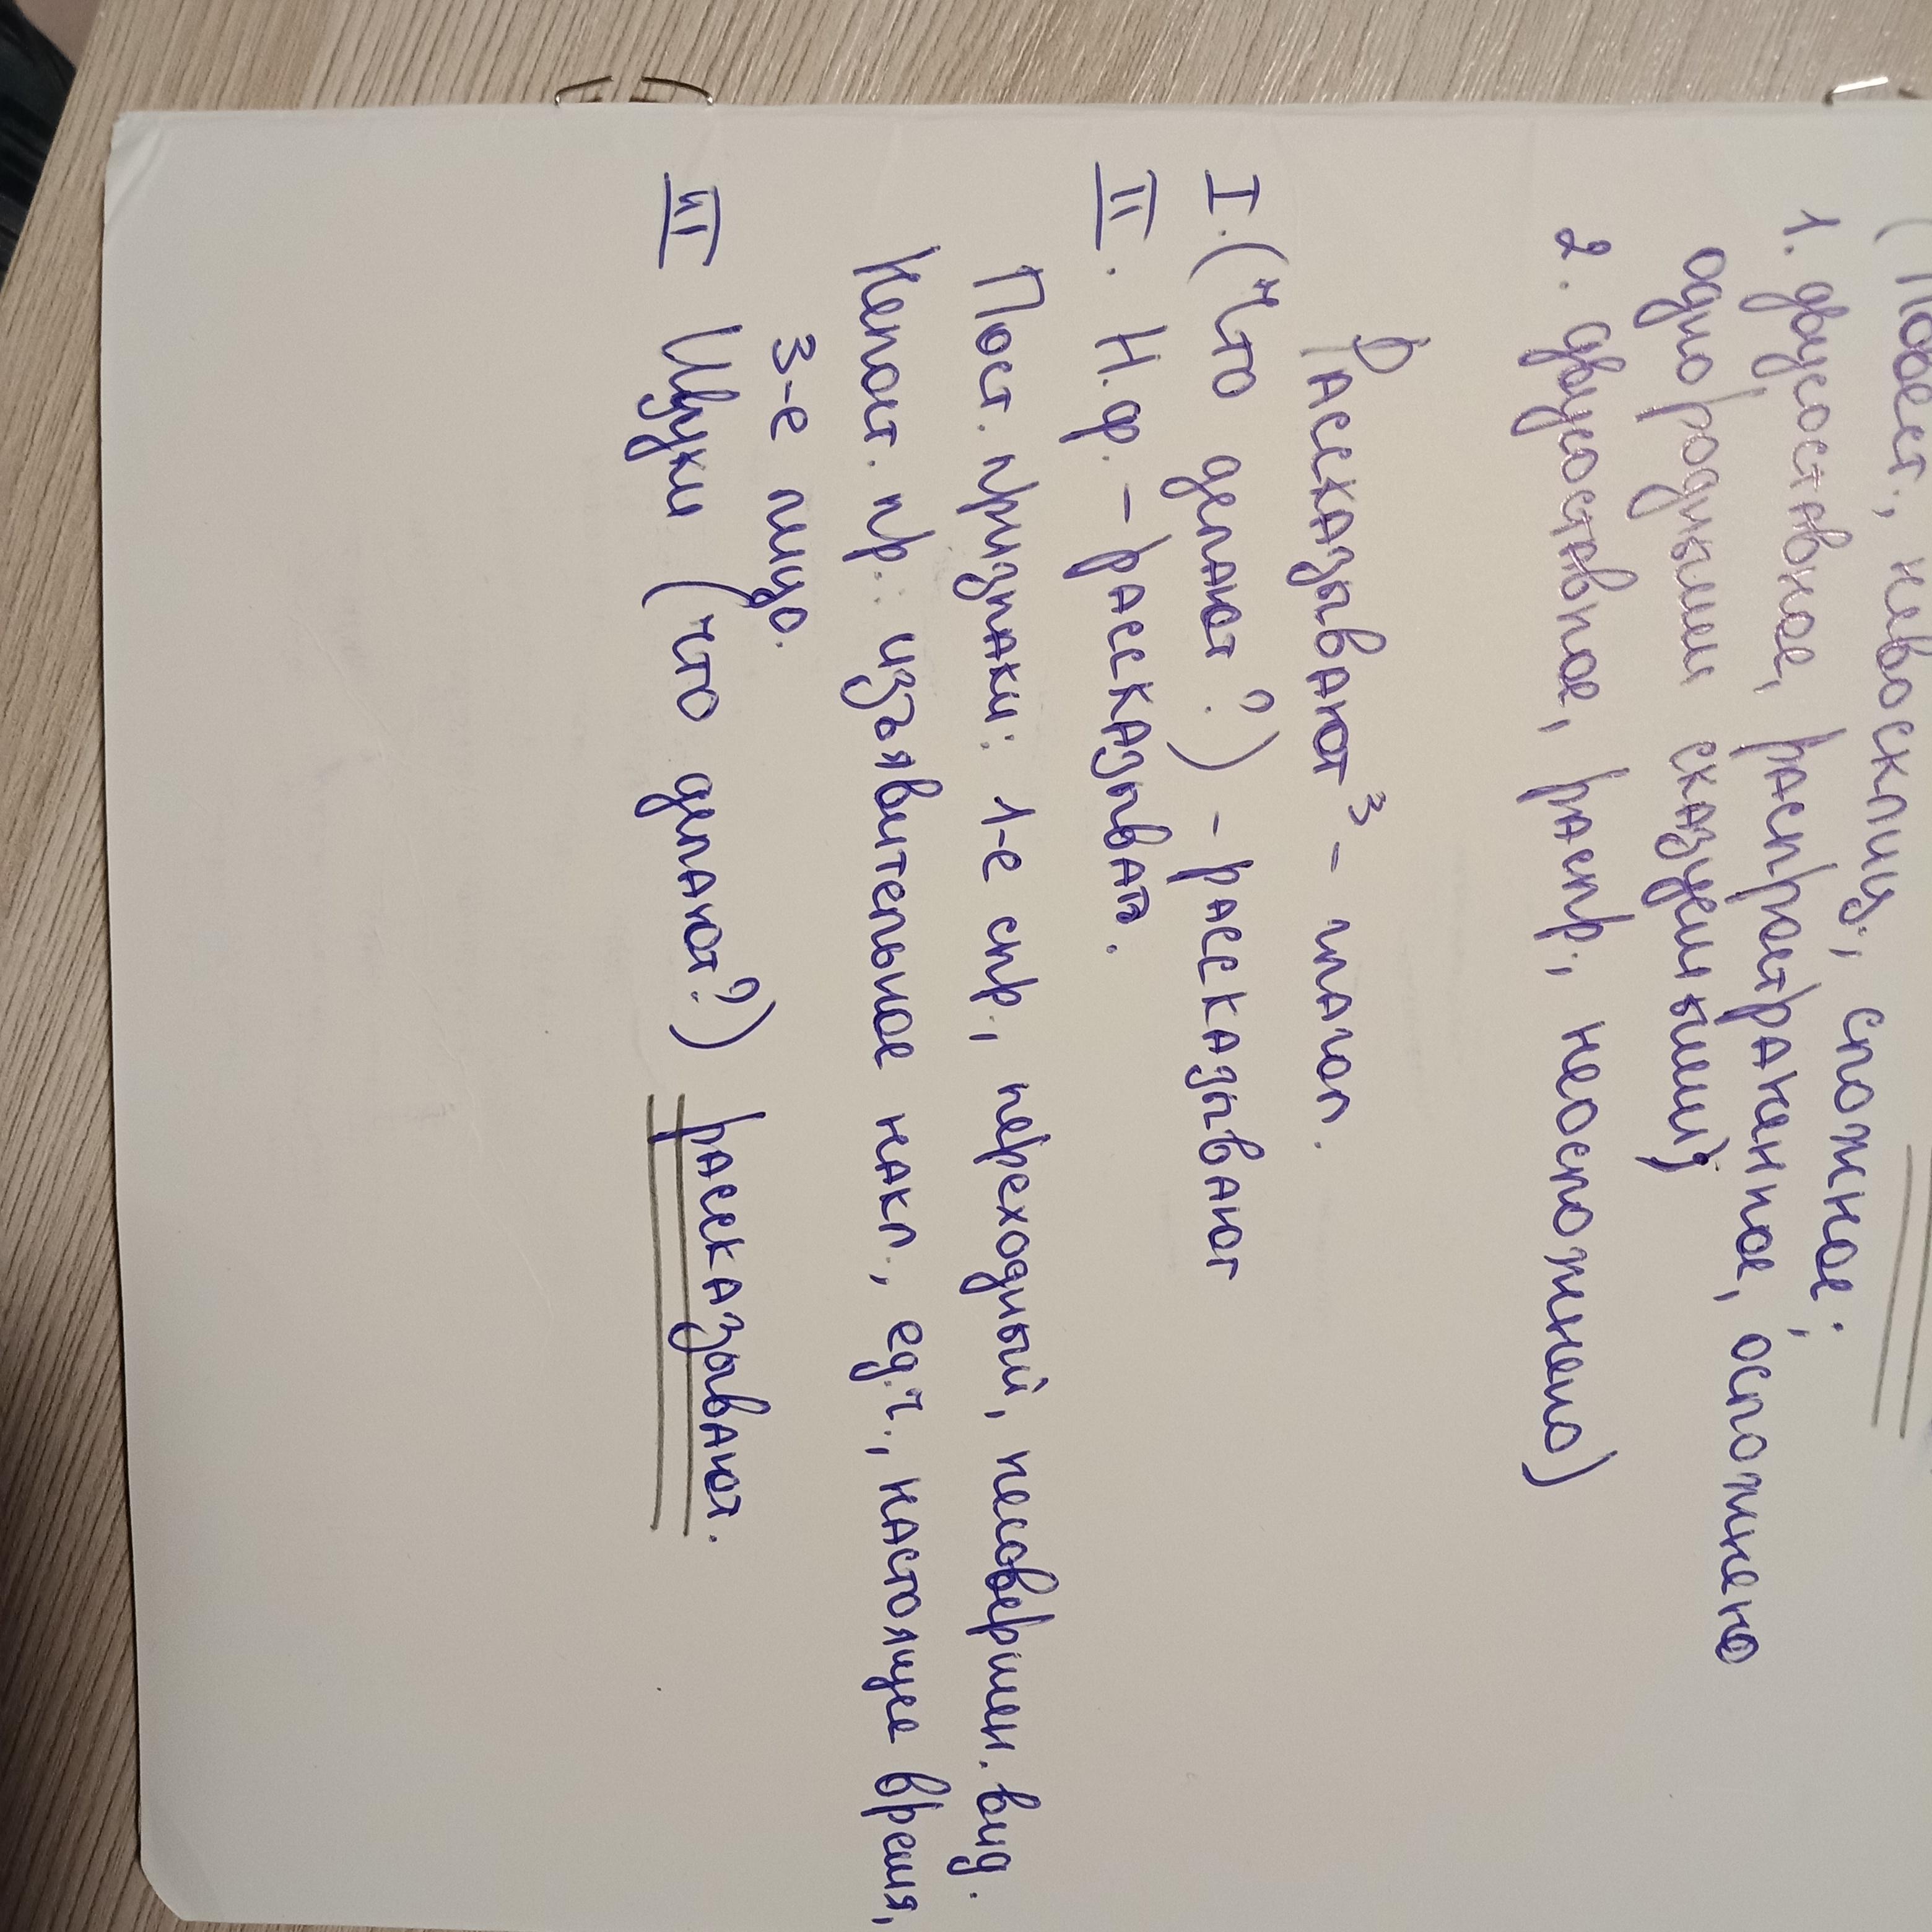 (Повест., невосклиц., сложное;
1. двусоставное, распространенное, осложнено
однородными сказуемыми;
2. двусоставное, распр., неосложнено)
Рассказывают³ – глагол.
I. (Что делают?) – рассказывают
II. Н.ф. – рассказывать.
Пост. признаки: 1-е спр., переходный, несовершен. вид.
Непост. пр.: изъявительное накл., ед.ч., настоящее время,
3-е лицо.
III Щуки (что делают?) рассказывают.